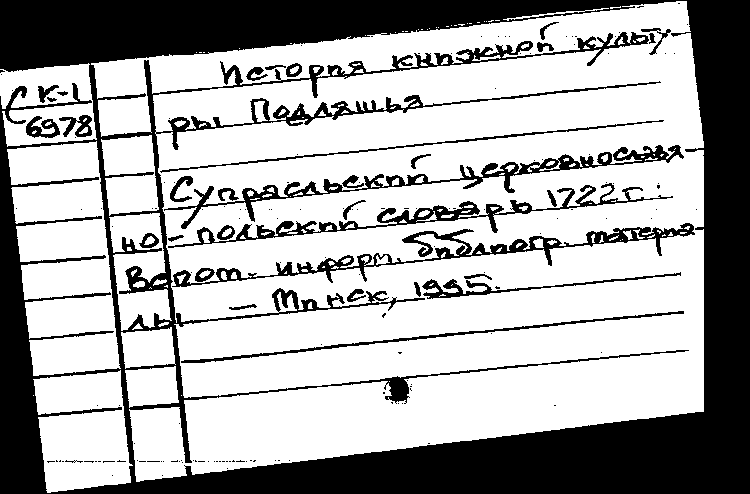 СК-1
6978
История книжной культу-
ры Подляшья
Супрасльский церковнославя-
но-польский словарь 1722 г.:
Вспом. информ. библиогр. материа-
лы. — Минск, 1995.